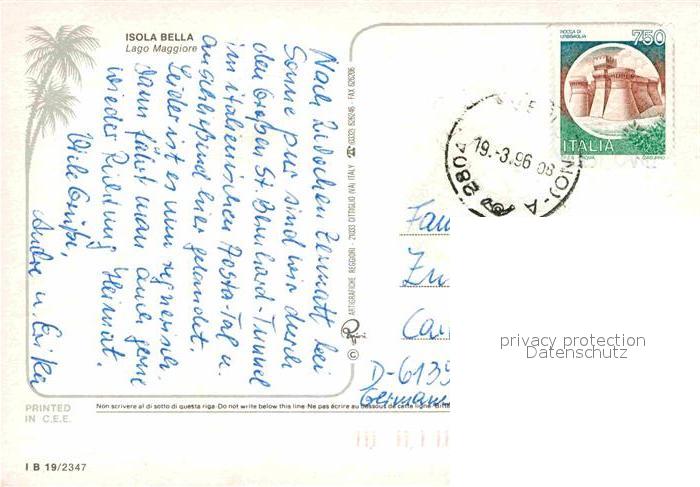 ISOLA BELLA
Lago Maggiore
Nach 2 Wochen Zermatt bei
Sonne pur sind wir durch
den Großen St. Bernhard-Tunnel
im italienischen Aosta-Tal u.
anschließend hier gelandet.
Leider ist es nun regnerisch.
Dann fährt man auch gerne
wieder Richtung Heimat.
Viele Grüße,
Andre u. Erika
ARTIGRAFICHE REGGIORI - 21033 CITTIGLIO (VA) ITALY ☎ (0332) 626245 - FAX 626206
©
ROCCA DI
URBISAGLIA
750
ITALIA
19.-3.96 08
2804
(NO)-A
Fam
Zu
Ca
D-6135
Germany
privacy protection
Datenschutz
PRINTED
IN C.E.E.
Non scrivere al di sotto di questa riga-Do not write below this line-Ne pas écrire au dessous de cette ligne-Bitte
I B 19/2347